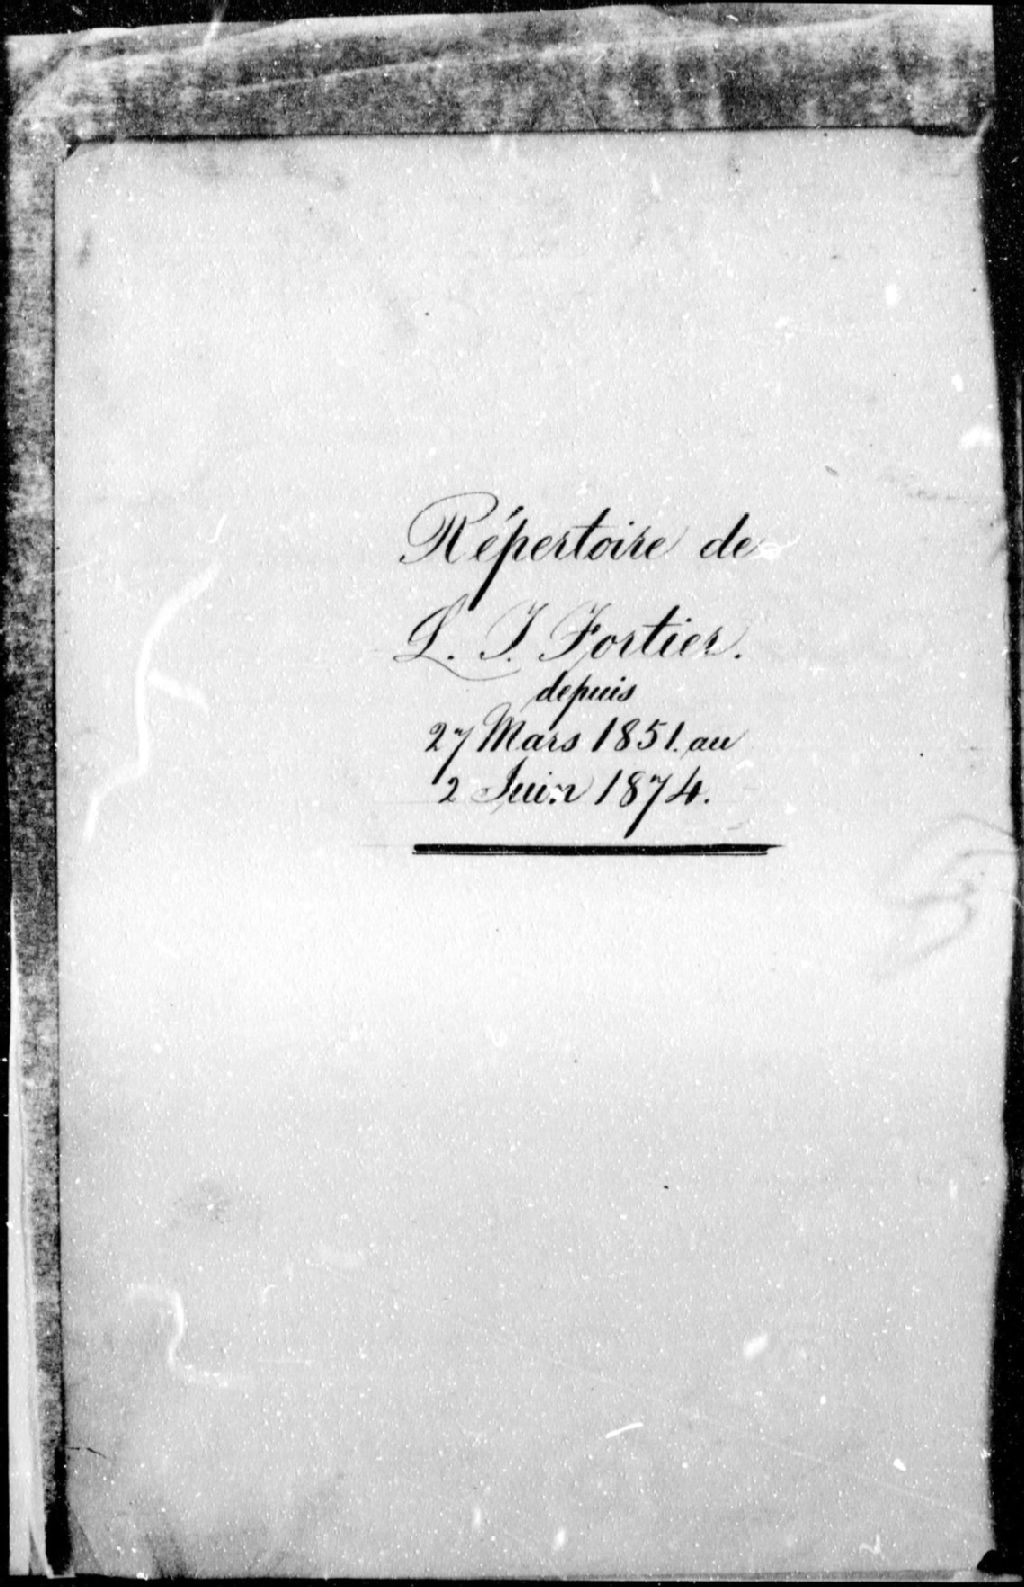 Répertoire de
L. J. Fortier.
depuis
27 Mars 1851. au
2 Juin 1874.